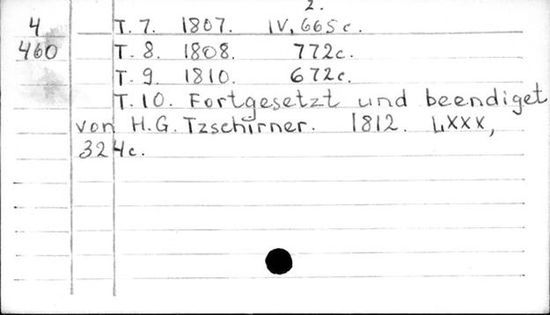 2.
4 T. 7. 1807. IV, 665c.
460 T. 8. 1808. 772c.
T. 9. 1810. 672c.
T. 10. Fortgesetzt und beendiget
von H. G. Tzschirner. 1812. LXXX,
324c.